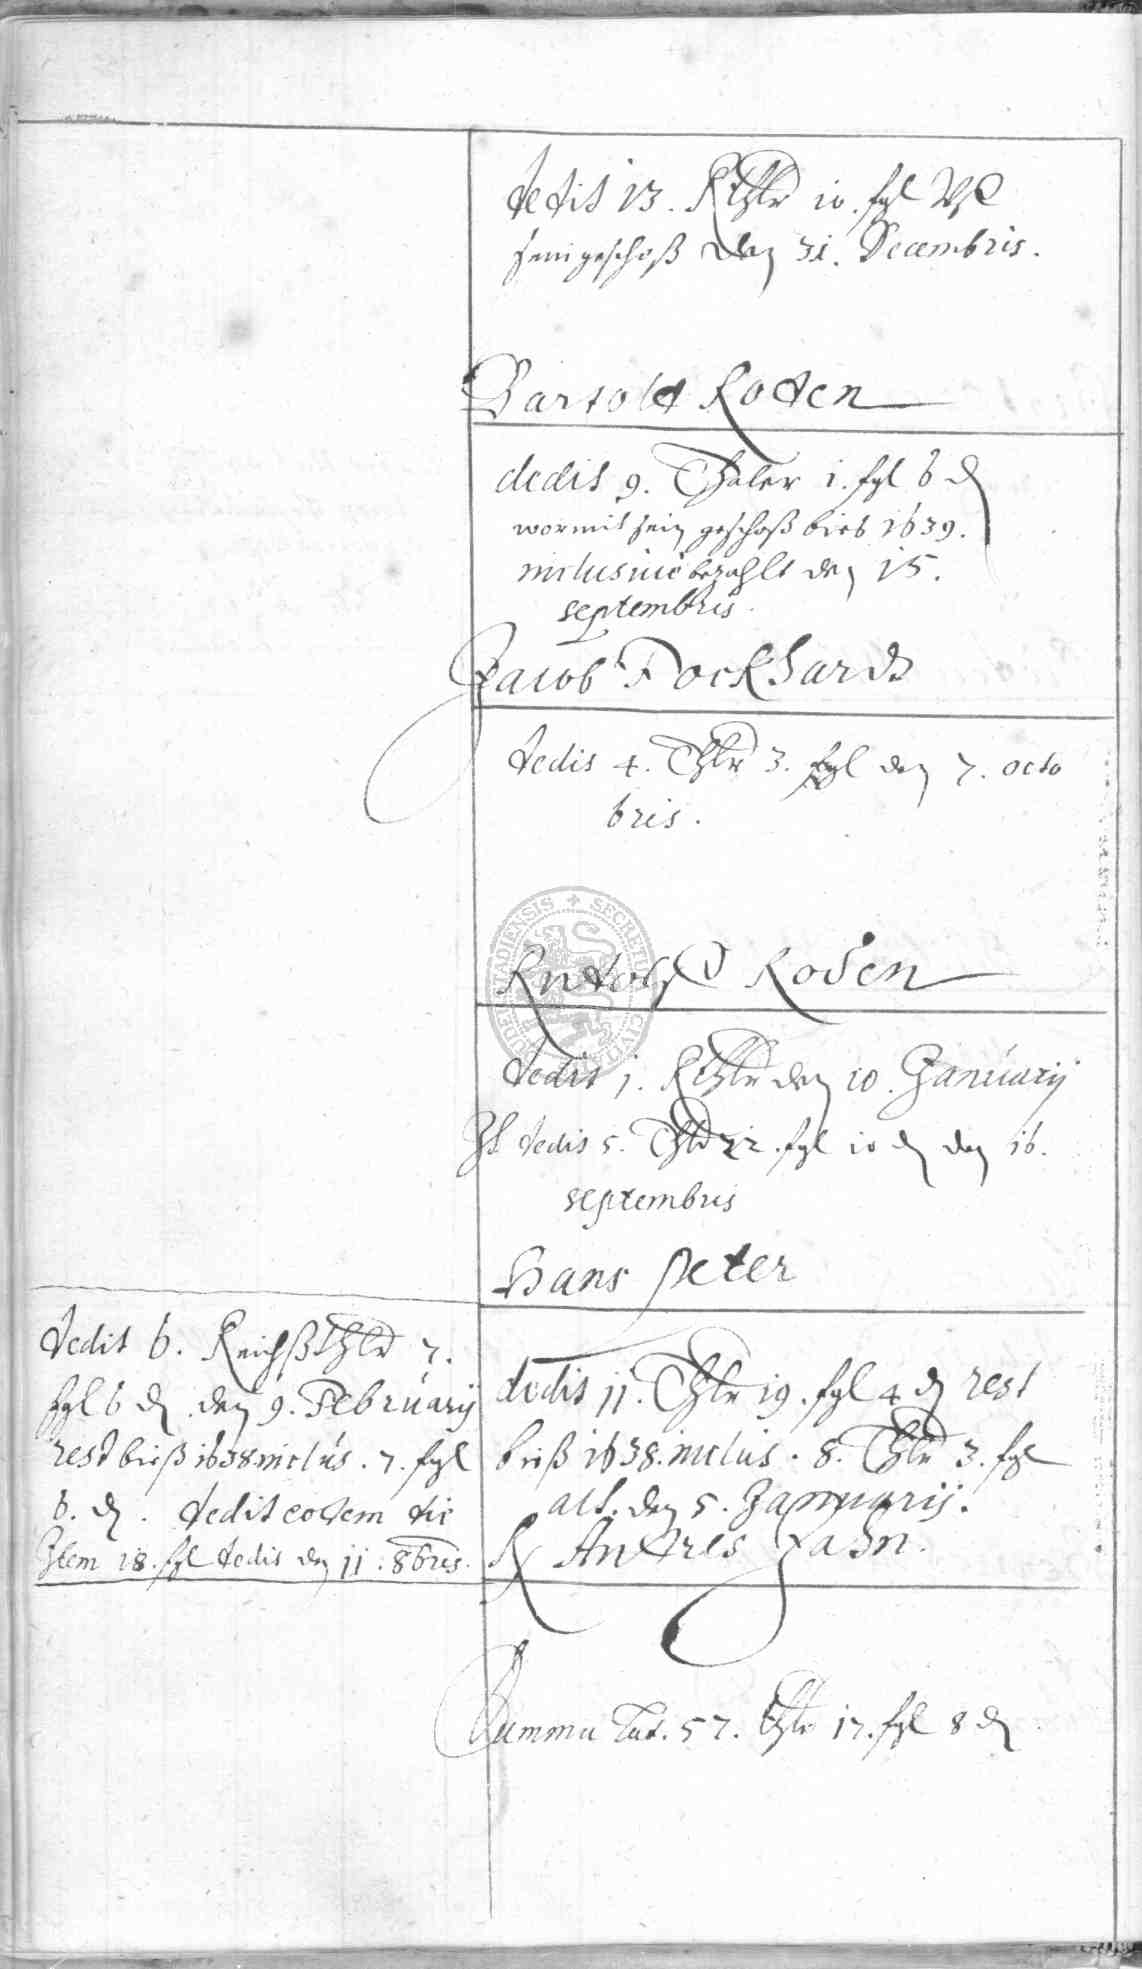 dedit 13. Rthlr 10. sgl
sein geschoß den 31. Decembris.
Bartold Roden
dedit 9. Thaler 1. sgl 6 d
wormit sein geschoß bies 1639.
inclusive bezahlt den 15.
septembris.
Jacob Fockhardt
dedit 4. Thlr 3. sgl den 7. octo
bris.
Rudolff Roden
dedit 1. Rthlr den 10. Januarij
It. dedit 5. Thlr 22. sgl 10 d den 16.
septembris
Hans Peter
dedit 6. Reichßthlr 7.
sgl 6 d. den 9. Februarij
rest bieß 1638 inclus. 7. sgl
6. d. dedit eodem die
Item 18. sgl dedit den 11. 8bris.
dedit 11. Thlr 19. sgl 4 d rest
bieß 1638. inclus. 8. Thlr 3. sgl
act. den 5. Januarij.
Andres Hahn.
Summa Lat. 57. thlr 17. sgl 8 d
SECRETUM CIVITATIS UDENSTADIENSIS